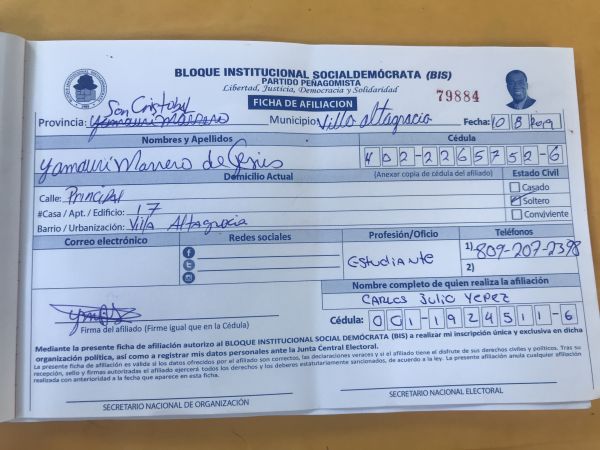 BLOQUE INSTITUCIONAL SOCIALDEMÓCRATA (BIS)
PARTIDO PEÑAGOMISTA
Libertad, Justicia, Democracia y Solidaridad
79884
FICHA DE AFILIACION
San Cristobal
Provincia: Yamauri Marrero Municipio: Villa Altagracia Fecha: 10 8 2019
Nombres y Apellidos Cédula
Yamauri Marrero de Jesus 402-2265752-6
Domicilio Actual (Anexar copia de cédula del afiliado) Estado Civil
Calle: Principal Casado
#Casa / Apt. / Edificio: 17 Soltero
Barrio / Urbanización: Villa Altagracia Conviviente
Correo electrónico Redes sociales Profesión/Oficio Teléfonos
Estudiante 1) 809-207-2398
2)
Nombre completo de quien realiza la afiliación
Carlos Julio Yepez
Firma del afiliado (Firme igual que en la Cédula) Cédula: 001-1924511-6
Mediante la presente ficha de afiliación autorizo al BLOQUE INSTITUCIONAL SOCIAL DEMÓCRATA (BIS) a realizar mi inscripción única y exclusiva en dicha
organización política, así como a registrar mis datos personales ante la Junta Central Electoral.
La presente ficha de afiliación es válida si los datos del afiliado son correctos, las declaraciones veraces y si el afiliado tiene el disfrute de sus derechos civiles y políticos. Tras su
recepción, sello y firmas autorizadas el afiliado ejercerá todos los derechos y los deberes estatutariamente sancionados, de acuerdo a la ley. La presente afiliación anula cualquier afiliación
realizada con anterioridad a la fecha que aparece en esta ficha.
SECRETARIO NACIONAL DE ORGANIZACIÓN SECRETARIO NACIONAL ELECTORAL